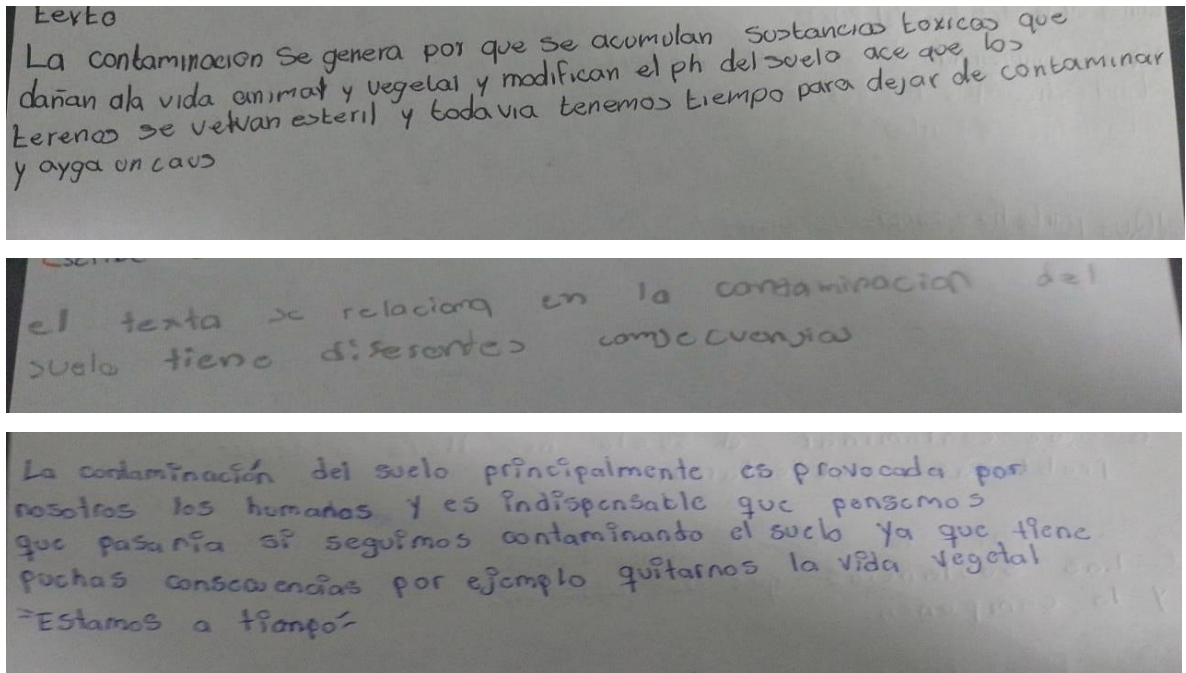 texto
La contaminacion se genera por que se acumulan sustancias toxicas que
dañan ala vida animal y vegetal y modifican el ph del suelo ace que los
terenos se velvan esteril y todavia tenemos tiempo para dejar de contaminar
y ayga un caus
el texta se relaciona en la contaminacion del
suelo tiene diferentes comsecuensias
La contaminación del suelo principalmente es provocada por
nosotros los humanos y es indispensable que pensemos
que pasaria si seguimos contaminando el suelo ya que tiene
puchas consecuencias por ejemplo quitarnos la vida vegetal
"Estamos a tiempo"